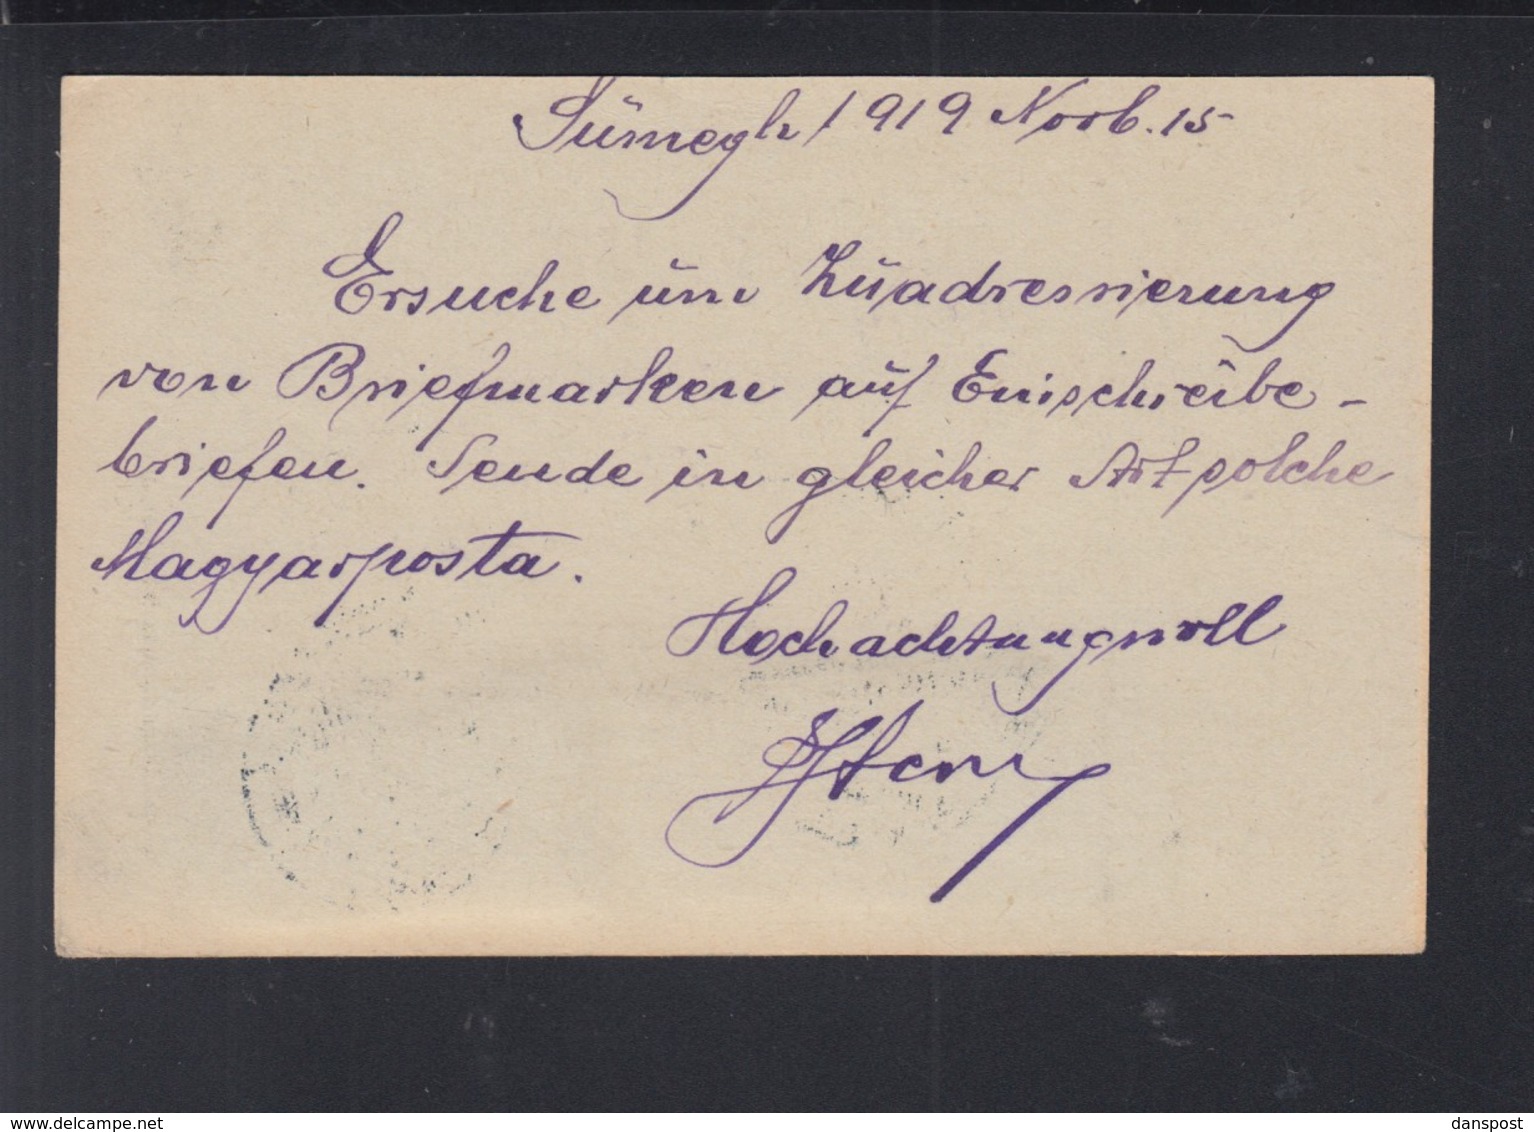 Sümegh 1919 Novb. 15
Ersuche um Zuadressierung
von Briefmarken auf Einschreibe-
briefen. Sende in gleicher Art solche
Magyarposta.
Hochachtungsvoll
Stern
www.delcampe.net
danspost